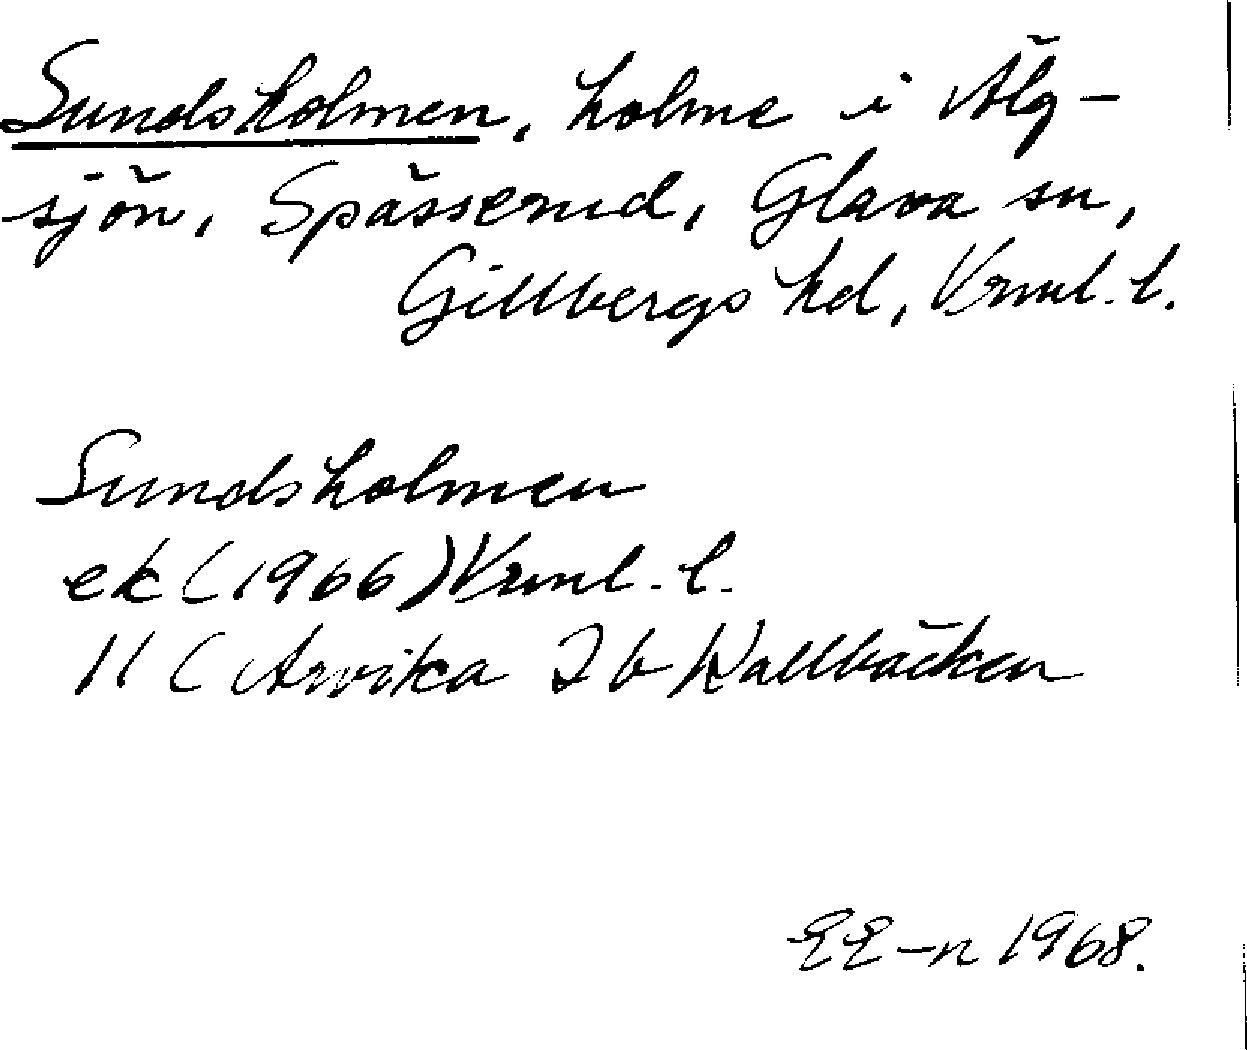 Sundsholmen, holme i Älg-
sjön, Spässerud, Glava sn,
Gillbergs hd, Vrml. l.
Sundsholmen
ek (1966) Vrml. l.
11 C Arvika 2 b Kallbäcken
EE-n 1968.